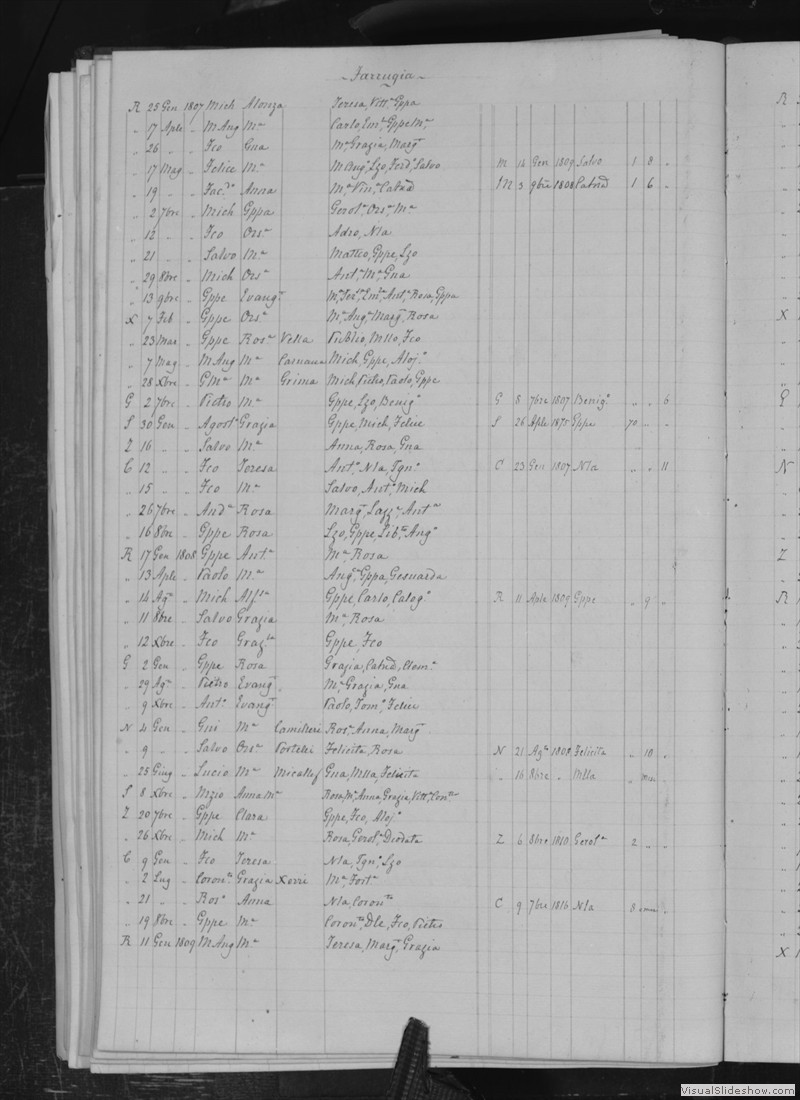 Farrugia
R 25 Gen 1807 Mich Alonza Teresa, Vitta, Gppa
" 17 Aple " MAng Ma Carlo, Eml, Gppe Ma
" 26 " " Fco Gna Ma Grazia, Marga
" 17 Mag " Felice Ma MAnga, Lzo, Ferdo, Salvo M 14 Gen 1809 Salvo 1 8 "
" 19 " " Anna Ma Vina, Catnd M 3 9bre 1808 Catnd 1 6 "
" 2 7bre " Mich Gppa Gerola, Orsa, Ma
" 12 " " Fco Orsa Adeo, Nla
" 21 " " Salvo Ma Matteo, Gppe, Lzo
" 29 8bre " Mich Orsa Anta, Ma, Gna
" 13 9bre " Gppe Evanga Anta, Rosa, Gppa
X 7 Feb " Gppe Orsa Ma, Anga, Marga, Rosa
" 23 Mar " Gppe Rosa Vella Publio, Mllo, Fco
" 7 Mag " MAng Ma Caruana Mich, Gppe, Aloja
" 28 Xbre " GMa Ma Grima Mich, Pietro, Paolo, Gppe
G 2 7bre " Pietro Ma Gppe, Lzo, Benigo G 8 7bre 1807 Benigo " " 6
S 30 Gen " Agosto Grazia Gppe, Mich, Felice S 26 Aple Gppe 70 " "
Z 16 " " Salvo Ma Anna, Rosa, Gna
C 12 " " Fco Teresa Anta, Nla, Igna C 23 Gen 1807 Nla " " 11
" 15 " " Fco Ma Salvo, Anta, Mich
" 26 7bre " Anda Rosa Marga, Anta
" 16 8bre " Gppe Rosa Lzo, Gppe, Libta, Anga
R 17 Gen 1808 Gppe Anta Ma, Rosa
" 13 Aple " Paolo Ma Anga, Gppa, Genuarda
" 14 Ago " Mich Alfsa Gppe, Carlo, Calogo R 11 Aple 1809 Gppe " 9 "
" 11 8bre " Salvo Grazia Ma, Rosa
" 12 Xbre " Fco Grazla Gppe, Fco
G 2 Gen " Gppe Rosa Grazia, Catnd, Cloma
" 29 Ago " Pietro Evanga Ma, Grazia, Gna
" 9 Xbre " Anto Evanga Paolo, Tomo, Felice
N 4 Gen " Gui Ma Camilleri Rosa, Anna, Marga
" 9 " " Salvo Orsa Portelli Felicita, Rosa N 21 Ago 1808 Felicita " 10 "
" 25 Giug " Lucio Ma Micallef Gna, Mlla, Felicita " 16 8bre " Mlla "
S 8 Xbre " Nrzio Anna Ma Rosa, Ma, Anna, Grazia, Vitta
Z 20 7bre " Gppe Clara Gppe, Fco, Aloja
" 26 Xbre " Mich Ma Rosa, Gerola, Diodata Z 6 8bre 1810 Gerola 2 " "
C 9 Gen " Fco Teresa Nla, Igna, Lzo
" 2 Lug " Corono Grazia Xerri Ma, Forta
" 21 " " Roso Anna Nla, Corona C 9 7bre 1816 Nla 8
" 19 8bre " Gppe Ma Corona, Dle, Fco, Pietro
R 11 Gen 1809 MAng Ma Teresa, Marga, Grazia
VisualSlideshow.com